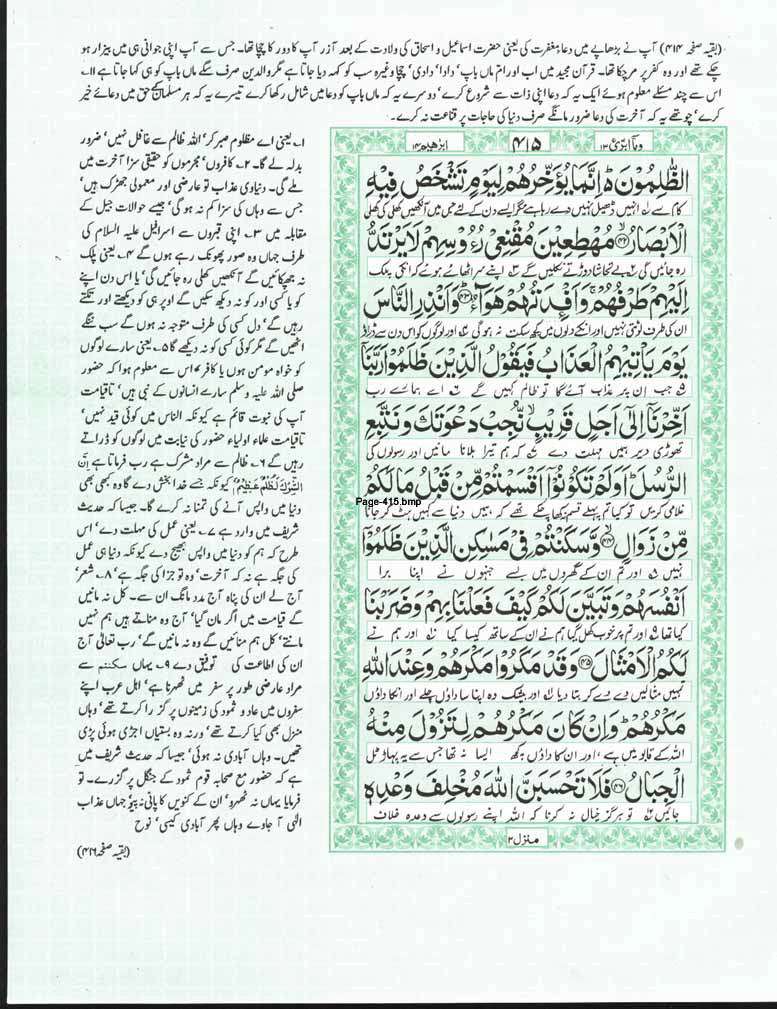 (بقیہ صفحہ ۴۱۴) آپ نے بڑھاپے میں دعاء مغفرت کی یعنی حضرت اسماعیل و اسحاق کی ولادت کے بعد آزر آپ کا دور کا چچا تھا۔ جس سے آپ اپنی جوانی ہی میں بیزار ہو
چکے تھے اور وہ کفر پر مر چکا تھا۔ قرآن مجید میں اب اور ام ماں باپ' دادا' دادی' چچا وغیرہ سب کو کہہ دیا جاتا ہے مگر والدین صرف سگے ماں باپ کو ہی کہا جاتا ہے ۱۱۔
اس سے چند مسئلے معلوم ہوئے ایک یہ کہ دعا اپنی ذات سے شروع کرے' دوسرے یہ کہ ماں باپ کو دعا میں شامل رکھا کرے تیسرے یہ کہ ہر مسلمان کے حق میں دعائے خیر
کرے' چوتھے یہ کہ آخرت کی دعا ضرور مانگے صرف دنیا کی حاجات پر قناعت نہ کرے۔
ابرٰھیم ۱۴
۴۱۵
وما ابرئ ۱۳
الظّٰلِمُوْنَ ۬ؕ اِنَّمَا یُؤَخِّرُهُمْ لِیَوْمٍ تَشْخَصُ فِیْهِ
کام سے ۱؎ انہیں ڈھیل نہیں دے رہا ہے مگر ایسے دن کے لئے جس میں آنکھیں کھلی کی کھلی
الْاَبْصَارُ ۙ﴿۴۲﴾ مُهْطِعِیْنَ مُقْنِعِیْ رُءُوْسِهِمْ لَا یَرْتَدُّ
رہ جائیں گی ۲؎ بے تحاشا دوڑتے نکلیں گے ۳؎ اپنے سر اٹھائے ہوئے کہ انکی پلک
اِلَیْهِمْ طَرْفُهُمْ ۚ وَاَفْـِٕدَتُهُمْ هَوَآءٌ ﴿۴۳﴾ وَاَنْذِرِ النَّاسَ
ان کی طرف لوٹتی نہیں اور انکے دلوں میں کچھ سکت نہ ہوگی ۴؎ اور لوگوں کو اس دن سے ڈراؤ
یَوْمَ یَاْتِیْهِمُ الْعَذَابُ فَیَقُوْلُ الَّذِیْنَ ظَلَمُوْا رَبَّنَاۤ
۵؎ جب ان پر عذاب آئے گا تو ظالم کہیں گے ۶؎ اے ہمارے رب
اَخِّرْنَاۤ اِلٰۤی اَجَلٍ قَرِیْبٍ ۙ نُّجِبْ دَعْوَتَكَ وَنَتَّبِعِ
تھوڑی دیر ہمیں مہلت دے ۷؎ کہ ہم تیرا بلانا مانیں اور رسولوں کی
الرُّسُلَ ؕ اَوَلَمْ تَكُوْنُوْۤا اَقْسَمْتُمْ مِّنْ قَبْلُ مَا لَكُمْ
Page-415.bmp
غلامی کریں تو کیا تم پہلے قسم نہ کھا چکے تھے کہ ہمیں دنیا سے کہیں ہٹ کر جانا
مِّنْ زَوَالٍ ﴿۴۴﴾ وَّسَكَنْتُمْ فِیْ مَسٰكِنِ الَّذِیْنَ ظَلَمُوْۤا
نہیں ۸؎ اور تم ان کے گھروں میں بسے جنہوں نے اپنا برا
اَنْفُسَهُمْ وَتَبَیَّنَ لَكُمْ كَیْفَ فَعَلْنَا بِهِمْ وَضَرَبْنَا
کیا تھا ۹؎ اور تم پر خوب کھل گیا ہم نے ان کے ساتھ کیسا کیا اور ہم نے
لَكُمُ الْاَمْثَالَ ﴿۴۵﴾ وَقَدْ مَكَرُوْا مَكْرَهُمْ وَعِنْدَ اللّٰهِ
تمہیں مثالیں دے دے کر بتا دیا اور بیشک وہ اپنا سا داؤں چلے اور انکا داؤں
مَكْرُهُمْ ؕ وَاِنْ كَانَ مَكْرُهُمْ لِتَزُوْلَ مِنْهُ
اللہ کے قابو میں ہے، اور ان کا داؤں کچھ ایسا نہ تھا جس سے یہ پہاڑ ٹل
الْجِبَالُ ﴿۴۶﴾ فَلَا تَحْسَبَنَّ اللّٰهَ مُخْلِفَ وَعْدِهٖ
جائیں تو ہرگز خیال نہ کرنا کہ اللہ اپنے رسولوں سے وعدہ خلاف
منزل ۳
۱۔ یعنی اے مظلوم صبر کر' اللہ ظالم سے غافل نہیں' ضرور
بدلہ لے گا۔ ۲۔ کافروں' مجرموں کو حقیقی سزا آخرت میں
ملے گی۔ دنیاوی عذاب تو عارضی اور معمولی جھڑک ہیں'
جس سے وہاں کی سزا کم نہ ہوگی' جیسے حوالات جیل کے
مقابلہ میں ۳۔ اپنی قبروں سے اسرافیل علیہ السلام کی
طرف جہاں وہ صور پھونک رہے ہوں گے ۴۔ یعنی پلک
نہ جھپکائیں گے آنکھیں کھلی رہ جائیں گی' یا اس دن اپنے
کو یا کسی اور کو نہ دیکھ سکیں گے اوپر ہی کو دیکھتے اور تکتے
رہیں گے' دل کسی کی طرف متوجہ نہ ہوں گے سب ننگے
اٹھیں گے مگر کوئی کسی کو نہ دیکھے گا ۵۔ یعنی سارے لوگوں
کو خواہ مومن ہوں یا کافر ۔ اس سے معلوم ہوا کہ حضور
صلی اللہ علیہ وسلم سارے انسانوں کے نبی ہیں' تاقیامت
آپ کی نبوت قائم ہے کیونکہ الناس میں کوئی قید نہیں'
تاقیامت علماء اولیاء حضور کی نیابت میں لوگوں کو ڈراتے
رہیں گے ۶۔ ظالم سے مراد مشرک ہے رب فرماتا ہے اِنَّ
الشِّرْكَ لَظُلْمٌ عَظِیْمٌ کیونکہ جسے خدا بخش دے گا وہ کبھی بھی
دنیا میں واپس آنے کی تمنا نہ کرے گا۔ جیسا کہ حدیث
شریف میں وارد ہے ۷۔ یعنی عمل کی مہلت دے' اس
طرح کہ ہم کو دنیا میں واپس بھیج دے کیونکہ دنیا ہی عمل
کی جگہ ہے نہ کہ آخرت' وہ تو جزا کی جگہ ہے' ۸۔ شعر'
آج لے ان کی پناہ آج مدد مانگ ان سے۔ کل نہ مانیں
گے قیامت میں اگر مان گیا' آج وہ مناتے ہیں ہم نہیں
مانتے' کل ہم منائیں گے وہ نہ مانیں گے' رب تعالیٰ آج
ان کی اطاعت کی توفیق دے ۹۔ یہاں سکنتم سے
مراد عارضی طور پر سفر میں ٹھہرنا ہے' اہل عرب اپنے
سفروں میں عاد و ثمود کی زمینوں پر گزرا کرتے تھے' وہاں
منزل بھی کیا کرتے تھے' ورنہ وہ بستیاں اجڑی ہوئی پڑی
تھیں۔ وہاں آبادی نہ ہوئی' جیسا کہ حدیث شریف میں
ہے کہ حضور مع صحابہ قوم ثمود کے جنگل پر گزرے۔ تو
فرمایا یہاں نہ ٹھہرو' ان کے کنویں کا پانی نہ پیو' جہاں عذاب
الٰہی آ جاوے وہاں پھر آبادی کیسی' نوح
(بقیہ صفحہ ۴۱۶)